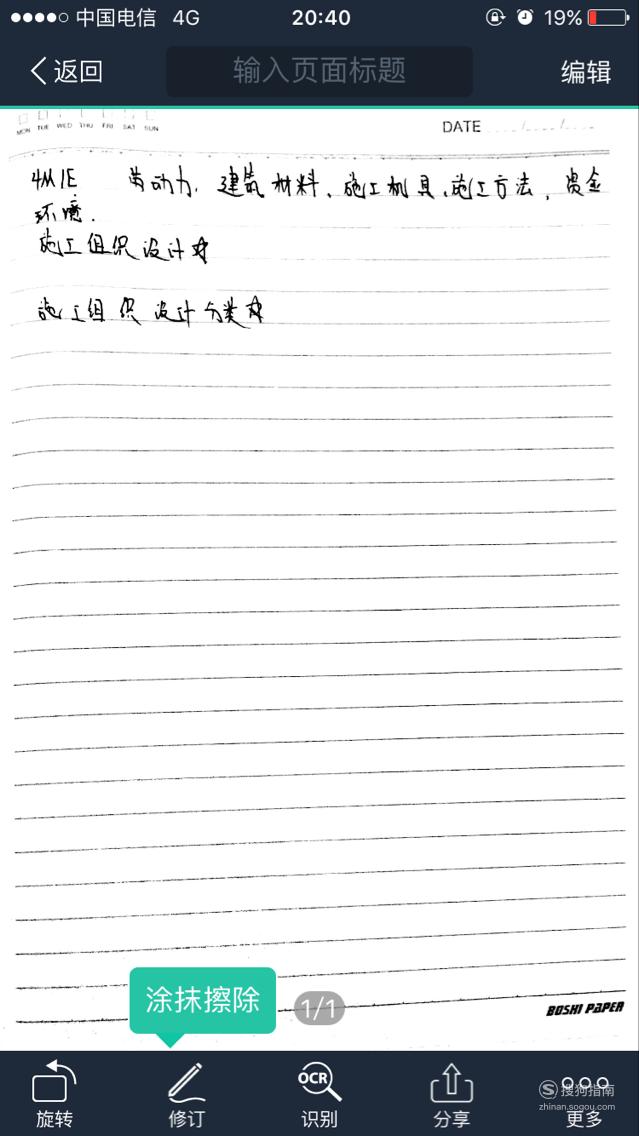 中国电信 4G 20:40 19%
返回 输入页面标题 编辑
MON TUE WED THU FRI SAT SUN
DATE
4M1E 劳动力、建筑材料、施工机具、施工方法、资金
环境.
施工组织设计☆
施工组织设计分类☆
涂抹擦除
1/1
BOSHI PAPER
旋转 修订 OCR 识别 分享 更多
搜狗指南
zhinan.sogou.com